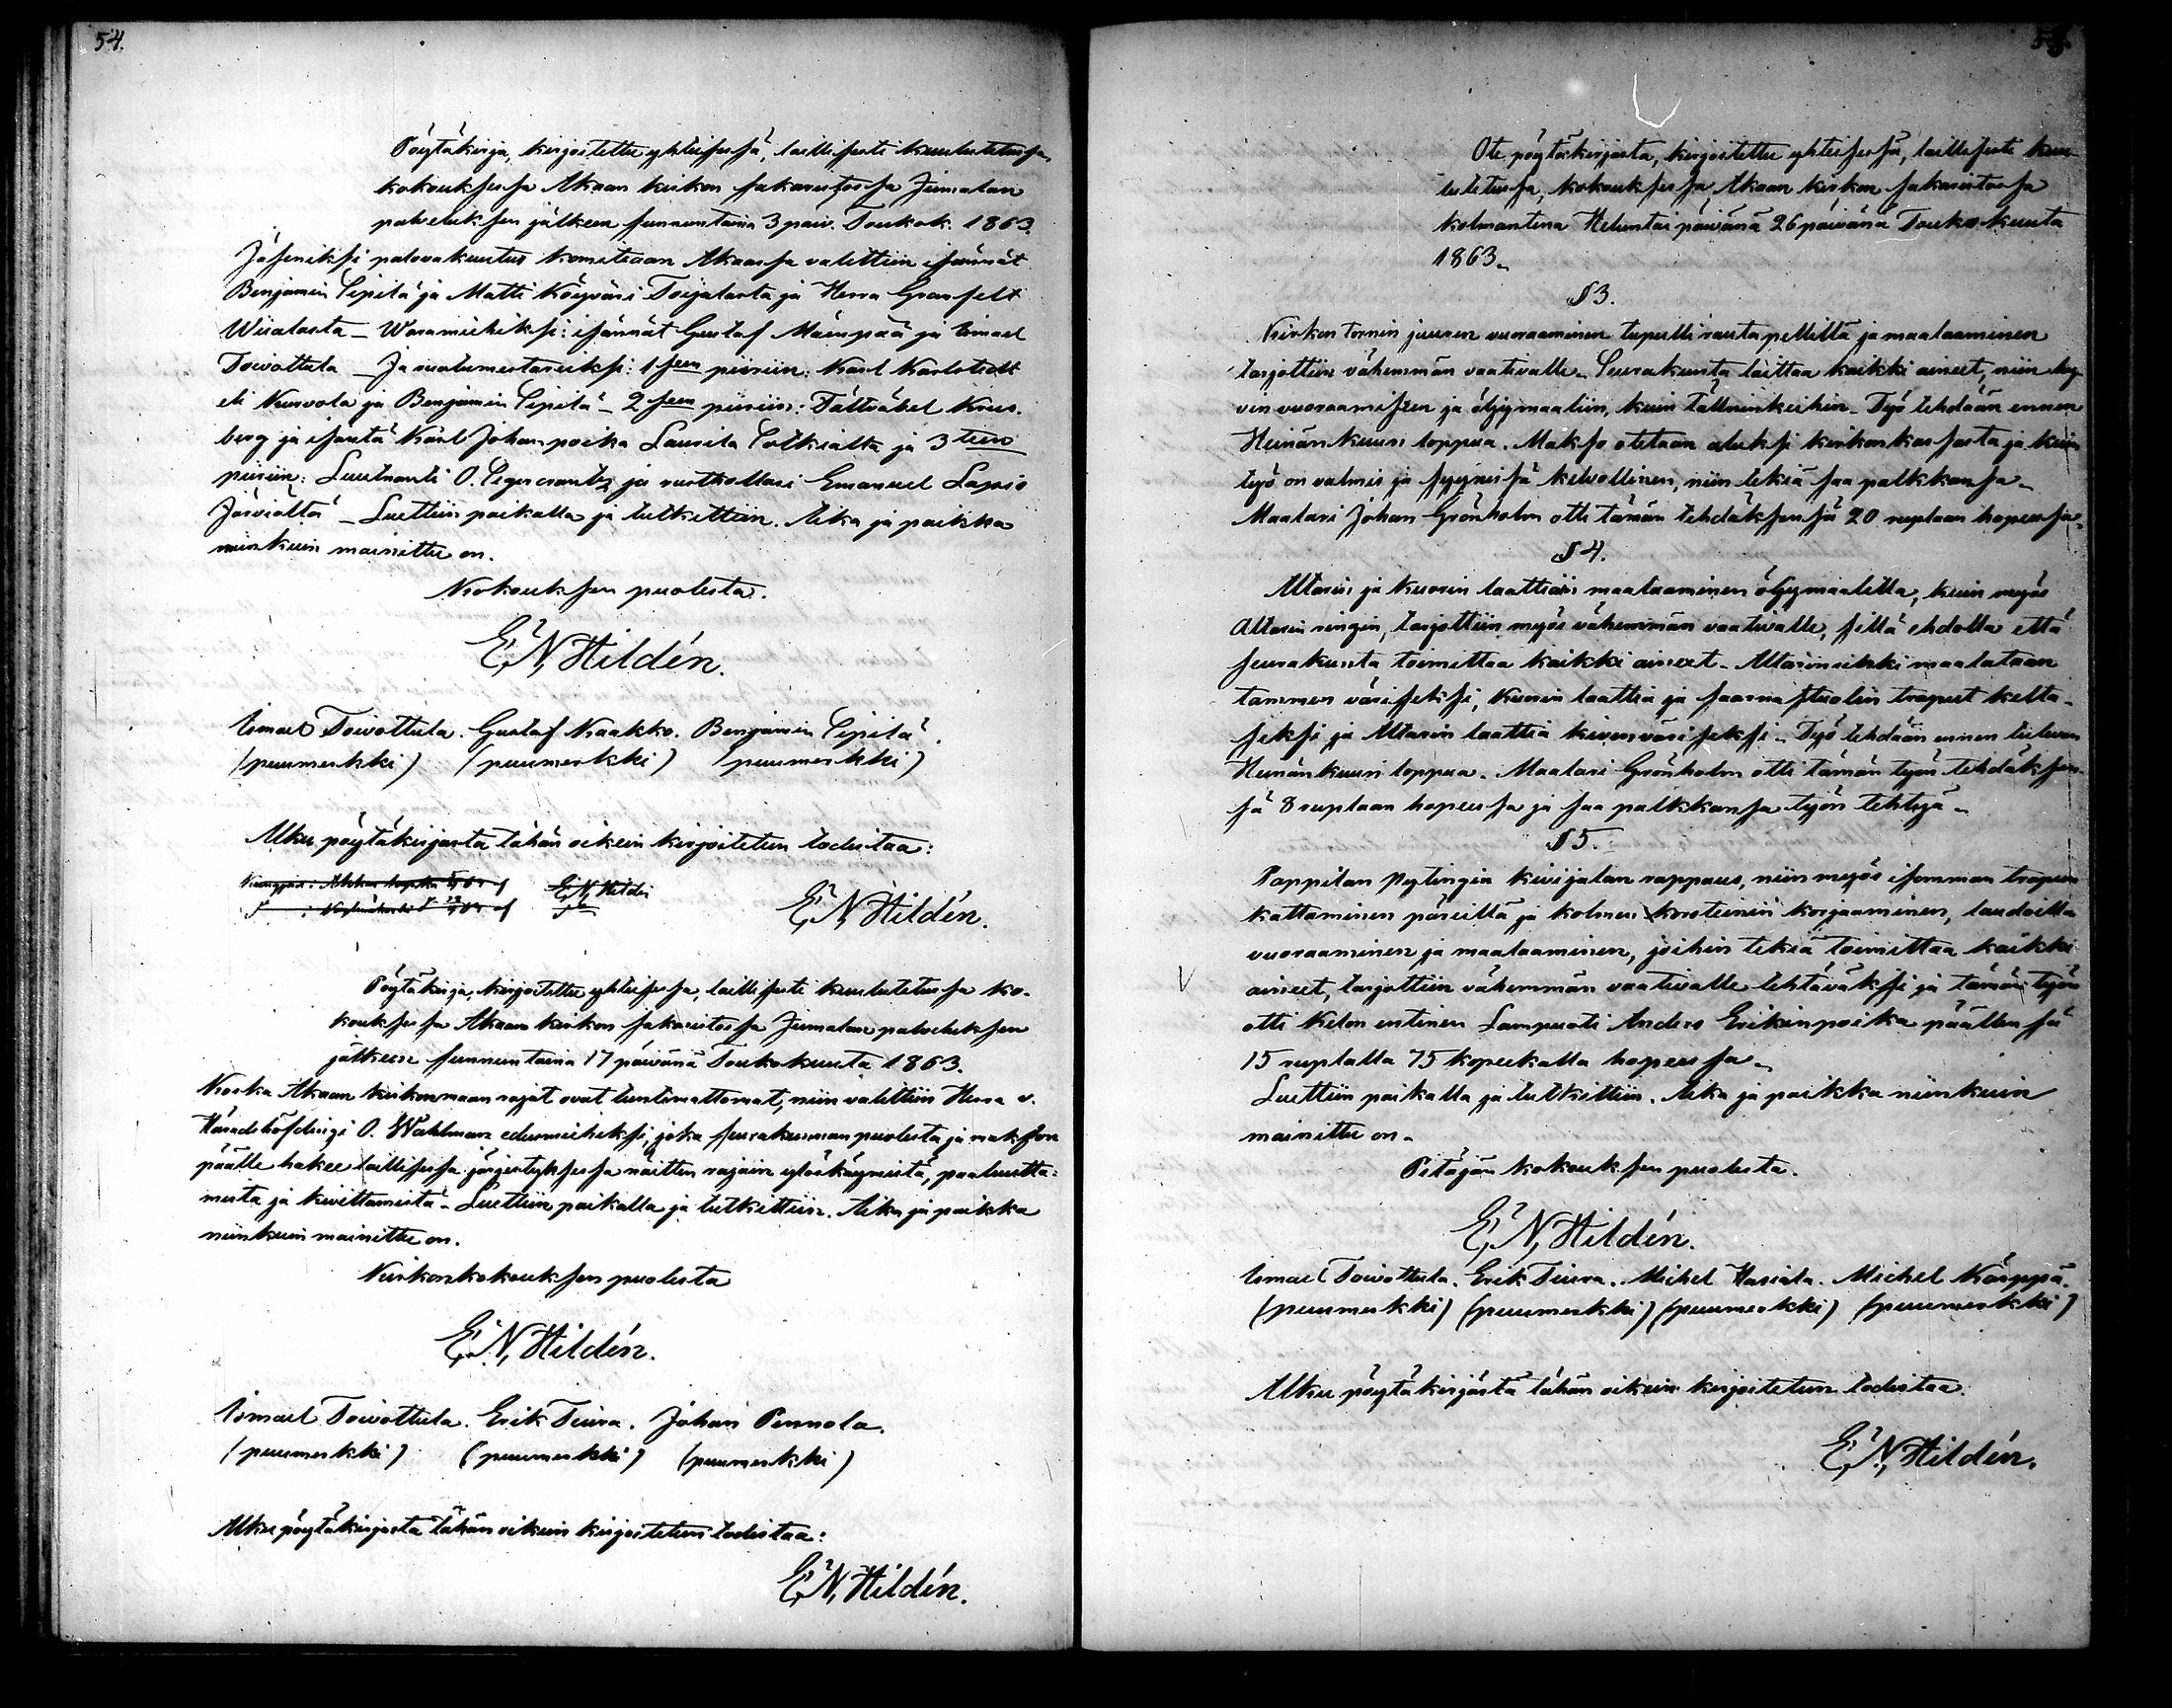 54.
Pöytäkirja, kirjoitettu yhteisessä, laillisesti kuulutetussa,
kokouksessa Akaan kirkon sakaristossa Jumalan
palveluksen jälkeen sunnuntaina 3 päiv. Toukok. 1863.
Jäseniksi palovakuutus komiteaan Akaassa valittiin isännät
Benjamin Sipilä ja Matti Köyväri Toijalasta ja Herra Granfelt
Wiialasta _ Waramiehiksi: isännät Gustaf Mäenpää ja Ismael
Toivottula _ Ja ruotumestareiksi: 1 seen piiriin: Karl Karlstedt
eli Kurvola ja Benjamin Sipilä _ 2 seen piiriin: Fältväbel Krus-
berg ja isäntä Karl Johanpoika Laurila ja 3 teen
piiriin: Luutnanti O. Segercrantz ja rusthollari Emanuel Lapio
Järviältä _ Luettiin paikalla ja tutkittiin. Aika ja paikka
niinkuin mainittu on.
Kokouksen puolesta.
E, N, Hildén.
Ismael Toivottula. Gustaf Kaakko. Benjamin Sipilä.
(puumerkki) (puumerkki) (puumerkki)
Alku pöytäkirjasta tähän oikein kirjoitetun todistaa:
E, N, Hildén
E, N, Hildén.
Pöytäkirja, kirjoitettu yhteisessä, laillisesti kuulutetussa ko-
kouksessa Akaan kirkon sakaristossa Jumalan palveluksen
jälkeen sunnuntaina 17 päivänä Toukokuuta 1863.
Koska Akaan kirkonmaan rajat ovat tuntemattomat, niin valittiin Herra v.
Häradshöfdingi O. Wahlman edesmieheksi, joka seurakunnan puolesta ja makson
päälle hakee laillisessa järjestyksessä näitten rajain ylöskäymistä, paaluutta-
mista ja kivittämistä _ Luettiin paikalla ja tutkittiin. Aika ja paikka
niinkuin mainittu on.
Kirkonkokouksen puolesta
E, N, Hildén.
Ismael Toivottula. Erik Tiura. Johan Pennola.
(puumerkki) (puumerkki) (puumerkki)
Alku pöytäkirjasta tähän oikein kirjoitetun todistaa:
E, N, Hildén.
Ote pöytäkirjasta, kirjoitettu yhteisessä, laillisesti kuu-
lutetussa, kokouksessa, Akaan kirkon sakaristossa
kolmantena Helluntai päivänä 26 päivänä Toukokuuta
1863_
§ 3.
Kirkon tornin juuren vuoraaminen tupulti rautapellillä ja maalaaminen
tarjottiin vähemmän vaativalle_ Seurakunta laittaa kaikki aineet, niin hy-
vin vuoraamiseen ja öljymaaliin, kuin tällninkeihin _ Työ tehdään ennen
Heinänkuun loppua. Makso otetaan aluksi kirkonkassasta ja kuin
työ on valmis ja syynissä kelvollinen, niin tekiä saa palkkansa_
Maalari Johan Grönholm otti tämän tehdäksensä 20 ruplaan hopeassa_
§ 4.
Altarin ja kuorin laattian maalaaminen öljymaalilla, kuin myös
Altarin ringin, tarjottiin myös vähemmän vaativalle, sillä ehdolla että
seurakunta toimittaa kaikki aineet _ Altarinrinki maalataan
tammen väriseksi, kuorin laattia ja saarnastuolin traput kelta-
seksi ja Altarin laattia kivenväriseksi _ Työ tehdään ennen tulevan
Heinänkuun loppua. Maalari Grönholm otti tämän työn tehdäksen-
sä 8 ruplaan hopeassa ja saa palkkansa työn tehtyä _
§ 5.
Pappilan pytingin kivijalan rappaus, niin myös isomman trapun
kattaminen päreillä ja kolmen korsteinin korjaaminen, laudoilla
vuoraaminen ja maalaaminen, joihin tekiä toimittaa kaikki
V aineet, tarjottiin vähemmän vaativalle tehtäväksi ja tämän työn
otti Kelon entinen Lampuoti Anders Erikinpoika päällensä
15 ruplalla 75 kopeekalla hopeassa _
Luettiin paikalla ja tutkittiin. Aika ja paikka niinkuin
mainittu on _
Pitäjän kokouksen puolesta.
E, N, Hildén.
Ismael Toivottula. Erik Tiura. Michel Hariala. Michel Kärppä.
(puumerkki) (puumerkki) (puumerkki) (puumerkki)
Alku pöytäkirjasta tähän oikein kirjoitetun todistaa.
E, N, Hildén.